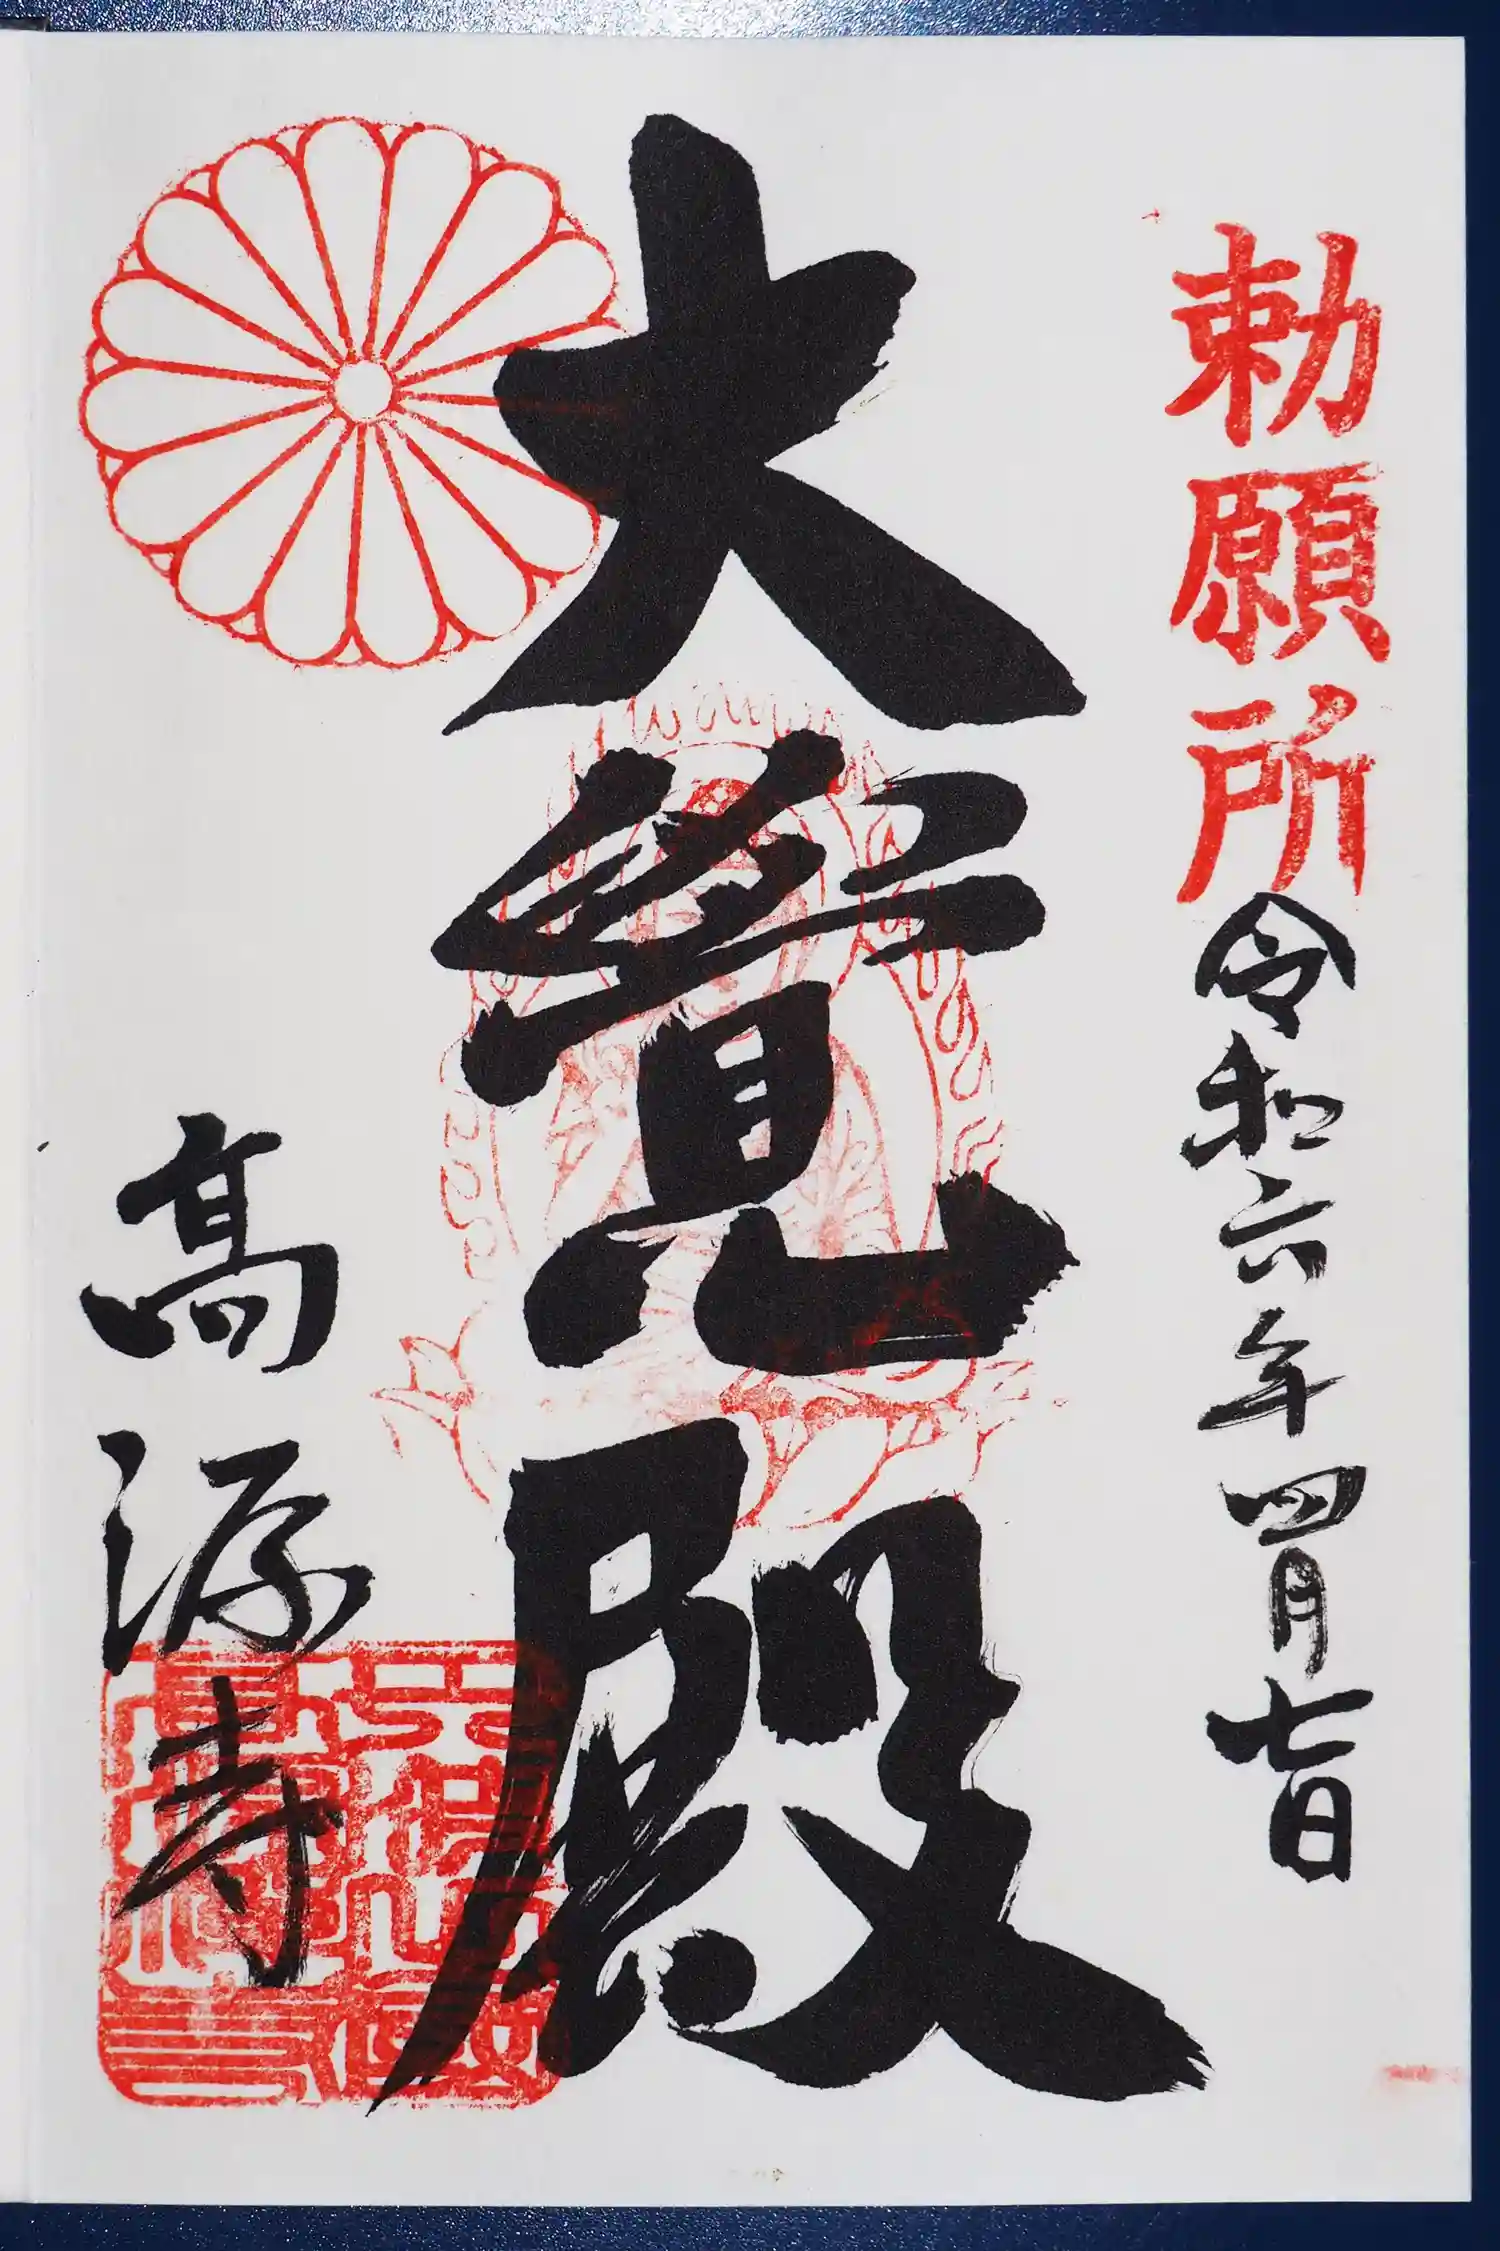 勅願所
令和六年四月七日
大覚殿
高源寺